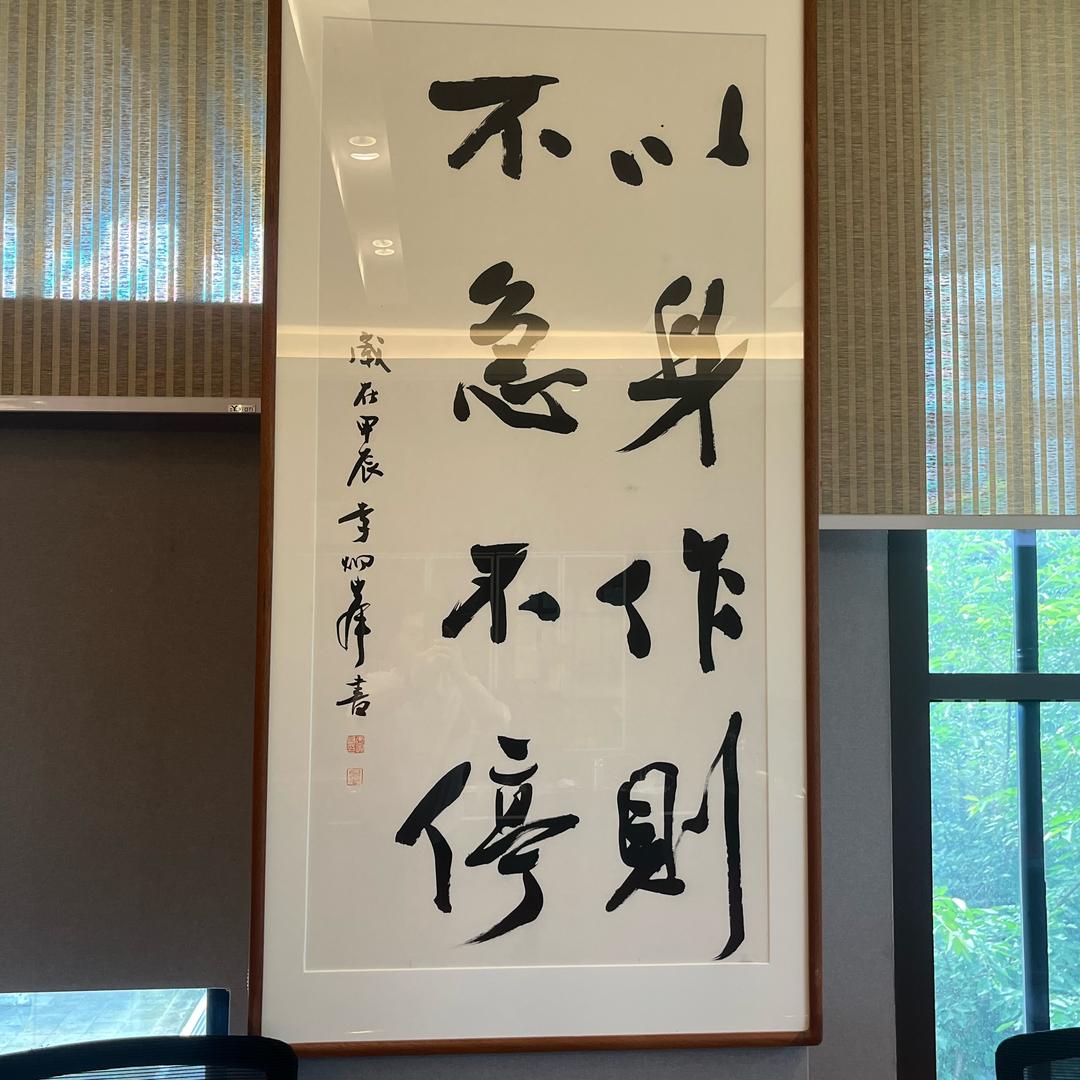 以身作則
不急不停
歲在甲辰 李炳峯書